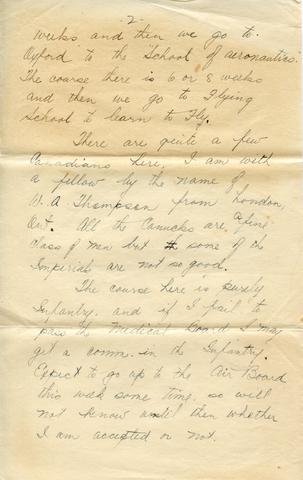 -2-
weeks and then we go to
Oxford to the School of aeronautics.
The course there is 6 or 8 weeks
and then we go to Flying
School to learn to Fly.
There are quite a few
Canadians here, I am with
a fellow by the name of
W. A Thompson from London,
Ont. All the Canucks are a fine
class of men but some of the
Imperials are not so good.
The course here is purely
Infantry. and if I fail to
pass the Medical Board I may
get a comm. in the Infantry.
Expect to go up to the Air Board
this week some time. so will
not know until then whether
I am accepted or not.